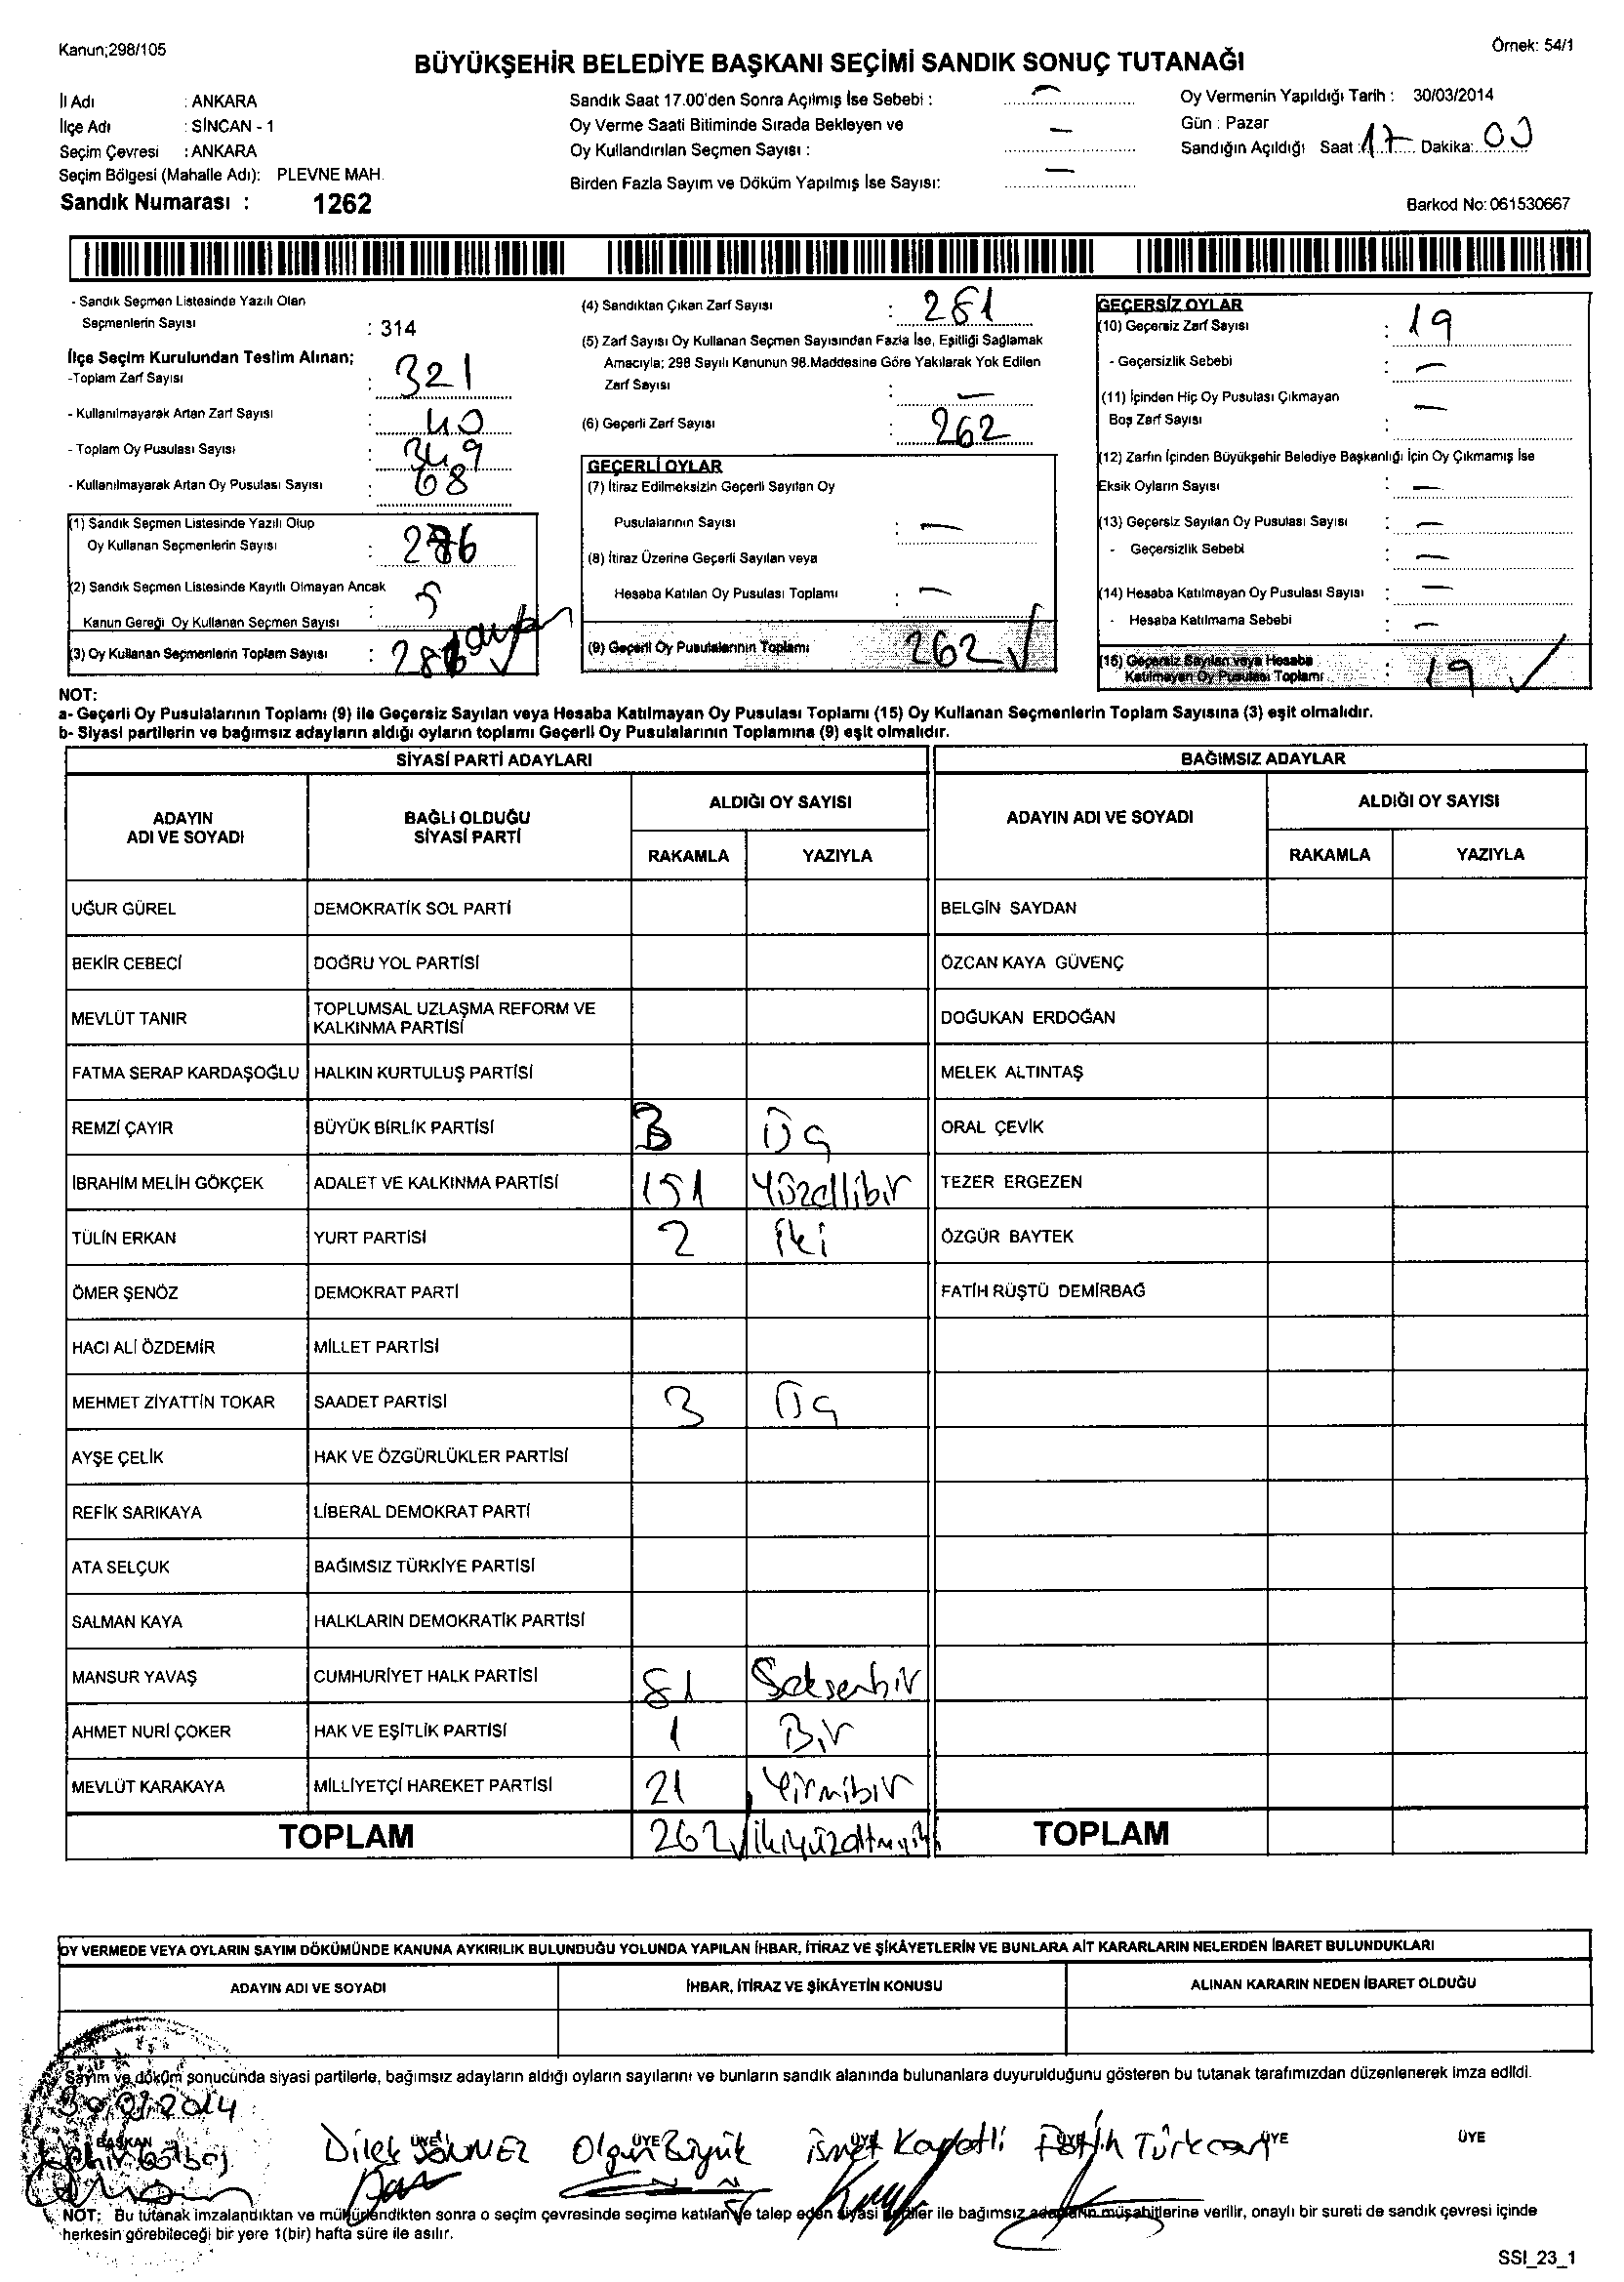 Kanun;298/105
Örnek: 54/1
BÜYÜKŞEHİR BELEDİYE BAŞKANI SEÇİMİ SANDIK SONUÇ TUTANAĞI
İl Adı : ANKARA
İlçe Adı : SİNCAN - 1
Seçim Çevresi : ANKARA
Seçim Bölgesi (Mahalle Adı): PLEVNE MAH.
Sandık Numarası : 1262
Sandık Saat 17.00'den Sonra Açılmış İse Sebebi : —
Oy Verme Saati Bitiminde Sırada Bekleyen ve
Oy Kullandırılan Seçmen Sayısı : —
Birden Fazla Sayım ve Döküm Yapılmış İse Sayısı: —
Oy Vermenin Yapıldığı Tarih : 30/03/2014
Gün : Pazar
Sandığın Açıldığı Saat : 17 Dakika: 00
Barkod No: 061530667
- Sandık Seçmen Listesinde Yazılı Olan
Seçmenlerin Sayısı : 314
İlçe Seçim Kurulundan Teslim Alınan;
-Toplam Zarf Sayısı : 321
- Kullanılmayarak Artan Zarf Sayısı : 40
- Toplam Oy Pusulası Sayısı : 349
- Kullanılmayarak Artan Oy Pusulası Sayısı : 68
(1) Sandık Seçmen Listesinde Yazılı Olup
Oy Kullanan Seçmenlerin Sayısı : 276
(2) Sandık Seçmen Listesinde Kayıtlı Olmayan Ancak
Kanun Gereği Oy Kullanan Seçmen Sayısı : 5
(3) Oy Kullanan Seçmenlerin Toplam Sayısı :
(4) Sandıktan Çıkan Zarf Sayısı : 281
(5) Zarf Sayısı Oy Kullanan Seçmen Sayısından Fazla İse, Eşitliği Sağlamak
Amacıyla; 298 Sayılı Kanunun 98.Maddesine Göre Yakılarak Yok Edilen
Zarf Sayısı : —
(6) Geçerli Zarf Sayısı : 262
GEÇERLİ OYLAR
(7) İtiraz Edilmeksizin Geçerli Sayılan Oy
Pusulalarının Sayısı : —
(8) İtiraz Üzerine Geçerli Sayılan veya
Hesaba Katılan Oy Pusulası Toplamı : —
(9) Geçerli Oy Pusulalarının Toplamı 262 ✓
GEÇERSİZ OYLAR
(10) Geçersiz Zarf Sayısı : 19
- Geçersizlik Sebebi : —
(11) İçinden Hiç Oy Pusulası Çıkmayan
Boş Zarf Sayısı : —
(12) Zarfın İçinden Büyükşehir Belediye Başkanlığı İçin Oy Çıkmamış İse
Eksik Oyların Sayısı : —
(13) Geçersiz Sayılan Oy Pusulası Sayısı : —
- Geçersizlik Sebebi : —
(14) Hesaba Katılmayan Oy Pusulası Sayısı : —
- Hesaba Katılmama Sebebi : —
(15) Geçersiz Sayılan veya Hesaba
Katılmayan Oy Pusulası Toplamı : 19 ✓
NOT:
a- Geçerli Oy Pusulalarının Toplamı (9) ile Geçersiz Sayılan veya Hesaba Katılmayan Oy Pusulası Toplamı (15) Oy Kullanan Seçmenlerin Toplam Sayısına (3) eşit olmalıdır.
b- Siyasi partilerin ve bağımsız adayların aldığı oyların toplamı Geçerli Oy Pusulalarının Toplamına (9) eşit olmalıdır.
SİYASİ PARTİ ADAYLARI
ADAYIN ADI VE SOYADI
BAĞLI OLDUĞU SİYASİ PARTİ
ALDIĞI OY SAYISI
RAKAMLA YAZIYLA
BAĞIMSIZ ADAYLAR
ADAYIN ADI VE SOYADI
ALDIĞI OY SAYISI
RAKAMLA YAZIYLA
UĞUR GÜREL DEMOKRATİK SOL PARTİ BELGİN SAYDAN
BEKİR CEBECİ DOĞRU YOL PARTİSİ ÖZCAN KAYA GÜVENÇ
MEVLÜT TANIR TOPLUMSAL UZLAŞMA REFORM VE KALKINMA PARTİSİ DOĞUKAN ERDOĞAN
FATMA SERAP KARDAŞOĞLU HALKIN KURTULUŞ PARTİSİ MELEK ALTINTAŞ
REMZİ ÇAYIR BÜYÜK BİRLİK PARTİSİ 3 Üç ORAL ÇEVİK
İBRAHİM MELİH GÖKÇEK ADALET VE KALKINMA PARTİSİ 151 Yüzellibir TEZER ERGEZEN
TÜLİN ERKAN YURT PARTİSİ 2 İki ÖZGÜR BAYTEK
ÖMER ŞENÖZ DEMOKRAT PARTİ FATİH RÜŞTÜ DEMİRBAĞ
HACI ALİ ÖZDEMİR MİLLET PARTİSİ
MEHMET ZİYATTİN TOKAR SAADET PARTİSİ 3 Üç
AYŞE ÇELİK HAK VE ÖZGÜRLÜKLER PARTİSİ
REFİK SARIKAYA LİBERAL DEMOKRAT PARTİ
ATA SELÇUK BAĞIMSIZ TÜRKİYE PARTİSİ
SALMAN KAYA HALKLARIN DEMOKRATİK PARTİSİ
MANSUR YAVAŞ CUMHURİYET HALK PARTİSİ 81 Seksenbir
AHMET NURİ ÇOKER HAK VE EŞİTLİK PARTİSİ 1 Bir
MEVLÜT KARAKAYA MİLLİYETÇİ HAREKET PARTİSİ 21 Yirmibir
TOPLAM 262 ✓ İkiyüzaltmışiki TOPLAM
OY VERMEDE VEYA OYLARIN SAYIM DÖKÜMÜNDE KANUNA AYKIRILIK BULUNDUĞU YOLUNDA YAPILAN İHBAR, İTİRAZ VE ŞİKÂYETLERİN VE BUNLARA AİT KARARLARIN NELERDEN İBARET BULUNDUKLARI
ADAYIN ADI VE SOYADI İHBAR, İTİRAZ VE ŞİKÂYETİN KONUSU ALINAN KARARIN NEDEN İBARET OLDUĞU
Sayım ve döküm sonucunda siyasi partilerle, bağımsız adayların aldığı oyların sayılarını ve bunların sandık alanında bulunanlara duyurulduğunu gösteren bu tutanak tarafımızdan düzenlenerek imza edildi.
BAŞKAN ÜYE ÜYE ÜYE ÜYE ÜYE ÜYE
Dilek SÖNMEZ Olgun Büyük İsmet Kaplatli Fatih Türkcan
NOT: Bu tutanak imzalandıktan ve mühürlendikten sonra o seçim çevresinde seçime katılan ve talep eden siyasi partiler ile bağımsız adayların müşahitlerine verilir, onaylı bir sureti de sandık çevresi içinde
herkesin görebileceği bir yere 1(bir) hafta süre ile asılır.
SSI_23_1